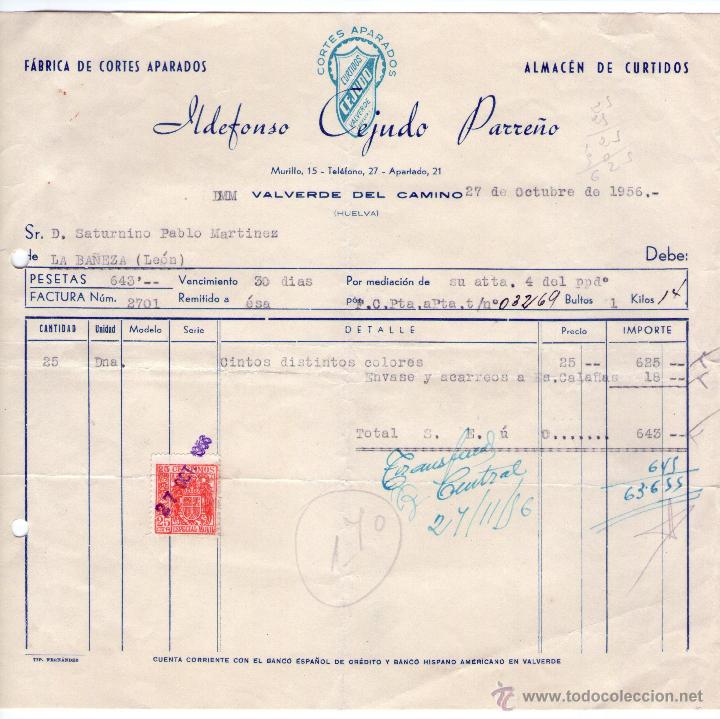 CORTES APARADOS
CURTIDOS
CEJUDO
VALVERDE
FÁBRICA DE CORTES APARADOS
ALMACÉN DE CURTIDOS
Ildefonso Cejudo Parreño
Murillo, 15 - Teléfono, 27 - Apartado, 21
VALVERDE DEL CAMINO 27 de Octubre de 1956.-
(HUELVA)
Sr. D. Saturnino Pablo Martinez
de LA BAÑEZA (León) Debe:
PESETAS 643'-- Vencimiento 30 dias Por mediación de su atta. 4 del ppdº
FACTURA Núm. 2701 Remitido a ésa por F.C.Pta.aPta.t/nº 032169 Bultos 1 Kilos 14
CANTIDAD Unidad Modelo Serie DETALLE Precio IMPORTE
25 Dna. Cintos distintos colores 25 -- 625 --
Envase y acarreos a Es.Calañas 18 --
Total S. E. ú O....... 643 --
27 OCT 1956
25 CENTIMOS
25
ESPECIAL MOVIL
Central
27/11/56
645
63.655
170
TIP. FERNÁNDEZ
CUENTA CORRIENTE CON EL BANCO ESPAÑOL DE CRÉDITO Y BANCO HISPANO AMERICANO EN VALVERDE
© www.todocoleccion.net